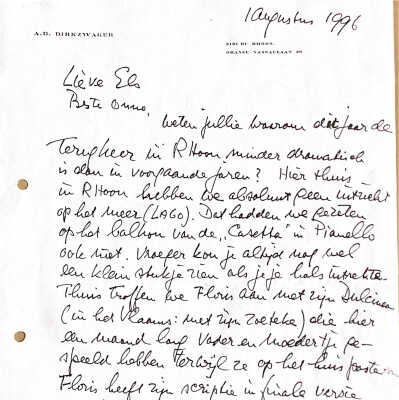 1 augustus 1996
A.D. DIRKZWAGER
ORANJE NASSAULAAN
Lieve Els
Beste Onno,
weten jullie waarom dit jaar de
terugkeer in RHoon minder dramatisch
is dan in voorgaande jaren? Hier thuis
in RHoon hebben we absoluut geen uitzicht
op het meer (LAGO). Dat hadden we gezeten
op het balkon van de "Casetta" in Pianello
ook niet. Vroeger kon je altijd nog wel
een klein stukje zien als je je hals uitrekte.
Thuis troffen we Floris aan met zijn Dulcinea
(in het Vlaams: met zijn Zoeteke) die hier
een maand lang Vader en moedertje ge-
speeld hebben terwijl ze op het huis pasten.
Floris heeft zijn scriptie in finale versie